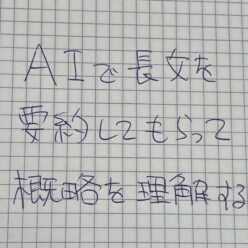 AIで長文を
要約してもらって
概略を理解する